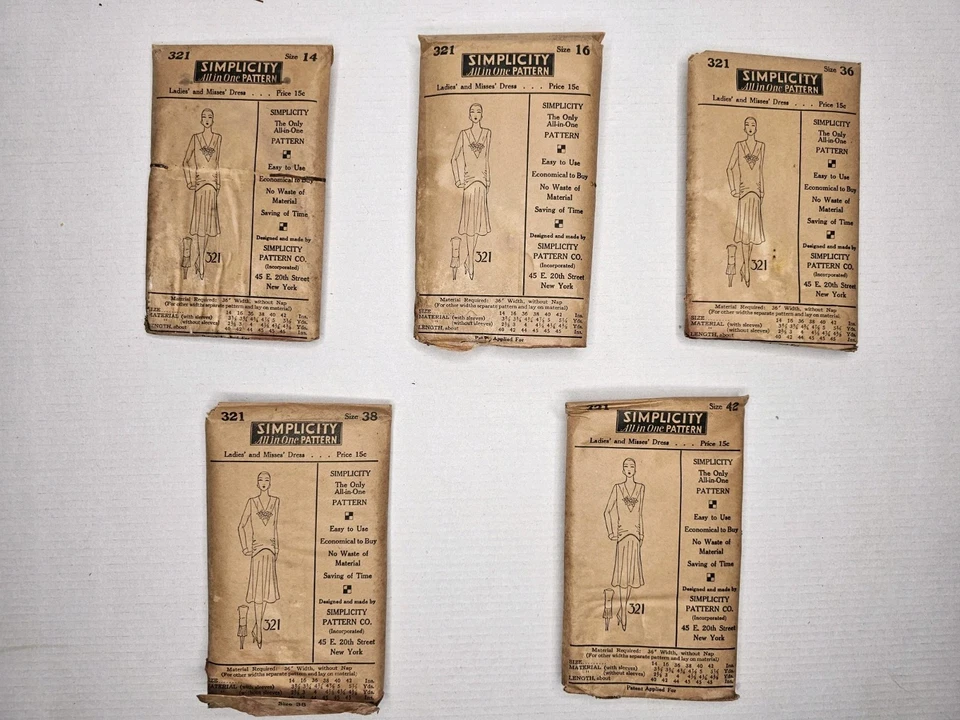 321 Size 14
SIMPLICITY
All in One PATTERN
Ladies' and Misses' Dress . . . Price 15c
SIMPLICITY
The Only
All-in-One
PATTERN
Easy to Use
Economical to Buy
No Waste of
Material
Saving of Time
Designed and made by
SIMPLICITY
PATTERN CO.
(Incorporated)
45 E. 20th Street
New York
321
Material Required: 36" Width, without Nap
(For other widths separate pattern and lay on material)
SIZE 14 16 36 38 40 42 Ins.
MATERIAL (with sleeves) Yds.
(without sleeves) Yds.
LENGTH, about Ins.
321 Size 16
SIMPLICITY
All in One PATTERN
Ladies' and Misses' Dress . . . Price 15c
SIMPLICITY
The Only
All-in-One
PATTERN
Easy to Use
Economical to Buy
No Waste of
Material
Saving of Time
Designed and made by
SIMPLICITY
PATTERN CO.
(Incorporated)
45 E. 20th Street
New York
321
Material Required: 36" Width, without Nap
(For other widths separate pattern and lay on material)
SIZE 14 16 36 38 40 42 Ins.
MATERIAL (with sleeves) Yds.
(without sleeves) Yds.
LENGTH, about Ins.
Applied For
321 Size 36
SIMPLICITY
All in One PATTERN
Ladies' and Misses' Dress . . . Price 15c
SIMPLICITY
The Only
All-in-One
PATTERN
Easy to Use
Economical to Buy
No Waste of
Material
Saving of Time
Designed and made by
SIMPLICITY
PATTERN CO.
(Incorporated)
45 E. 20th Street
New York
321
Material Required: 36" Width, without Nap
(For other widths separate pattern and lay on material)
SIZE 14 16 36 38 40 42 Ins.
MATERIAL (with sleeves) Yds.
(without sleeves) Yds.
LENGTH, about Ins.
321 Size 38
SIMPLICITY
All in One PATTERN
Ladies' and Misses' Dress . . . Price 15c
SIMPLICITY
The Only
All-in-One
PATTERN
Easy to Use
Economical to Buy
No Waste of
Material
Saving of Time
Designed and made by
SIMPLICITY
PATTERN CO.
(Incorporated)
45 E. 20th Street
New York
321
Material Required: 36" Width, without Nap
(For other widths separate pattern and lay on material)
SIZE 14 16 36 38 40 42 Ins.
MATERIAL (with sleeves) Yds.
(without sleeves) Yds.
321 Size 42
SIMPLICITY
All in One PATTERN
Ladies' and Misses' Dress . . . Price 15c
SIMPLICITY
The Only
All-in-One
PATTERN
Easy to Use
Economical to Buy
No Waste of
Material
Saving of Time
Designed and made by
SIMPLICITY
PATTERN CO.
(Incorporated)
45 E. 20th Street
New York
321
Material Required: 36" Width, without Nap
(For other widths separate pattern and lay on material)
SIZE 14 16 36 38 40 42 Ins.
MATERIAL (with sleeves) Yds.
(without sleeves) Yds.
LENGTH, about Ins.
Patent Applied For